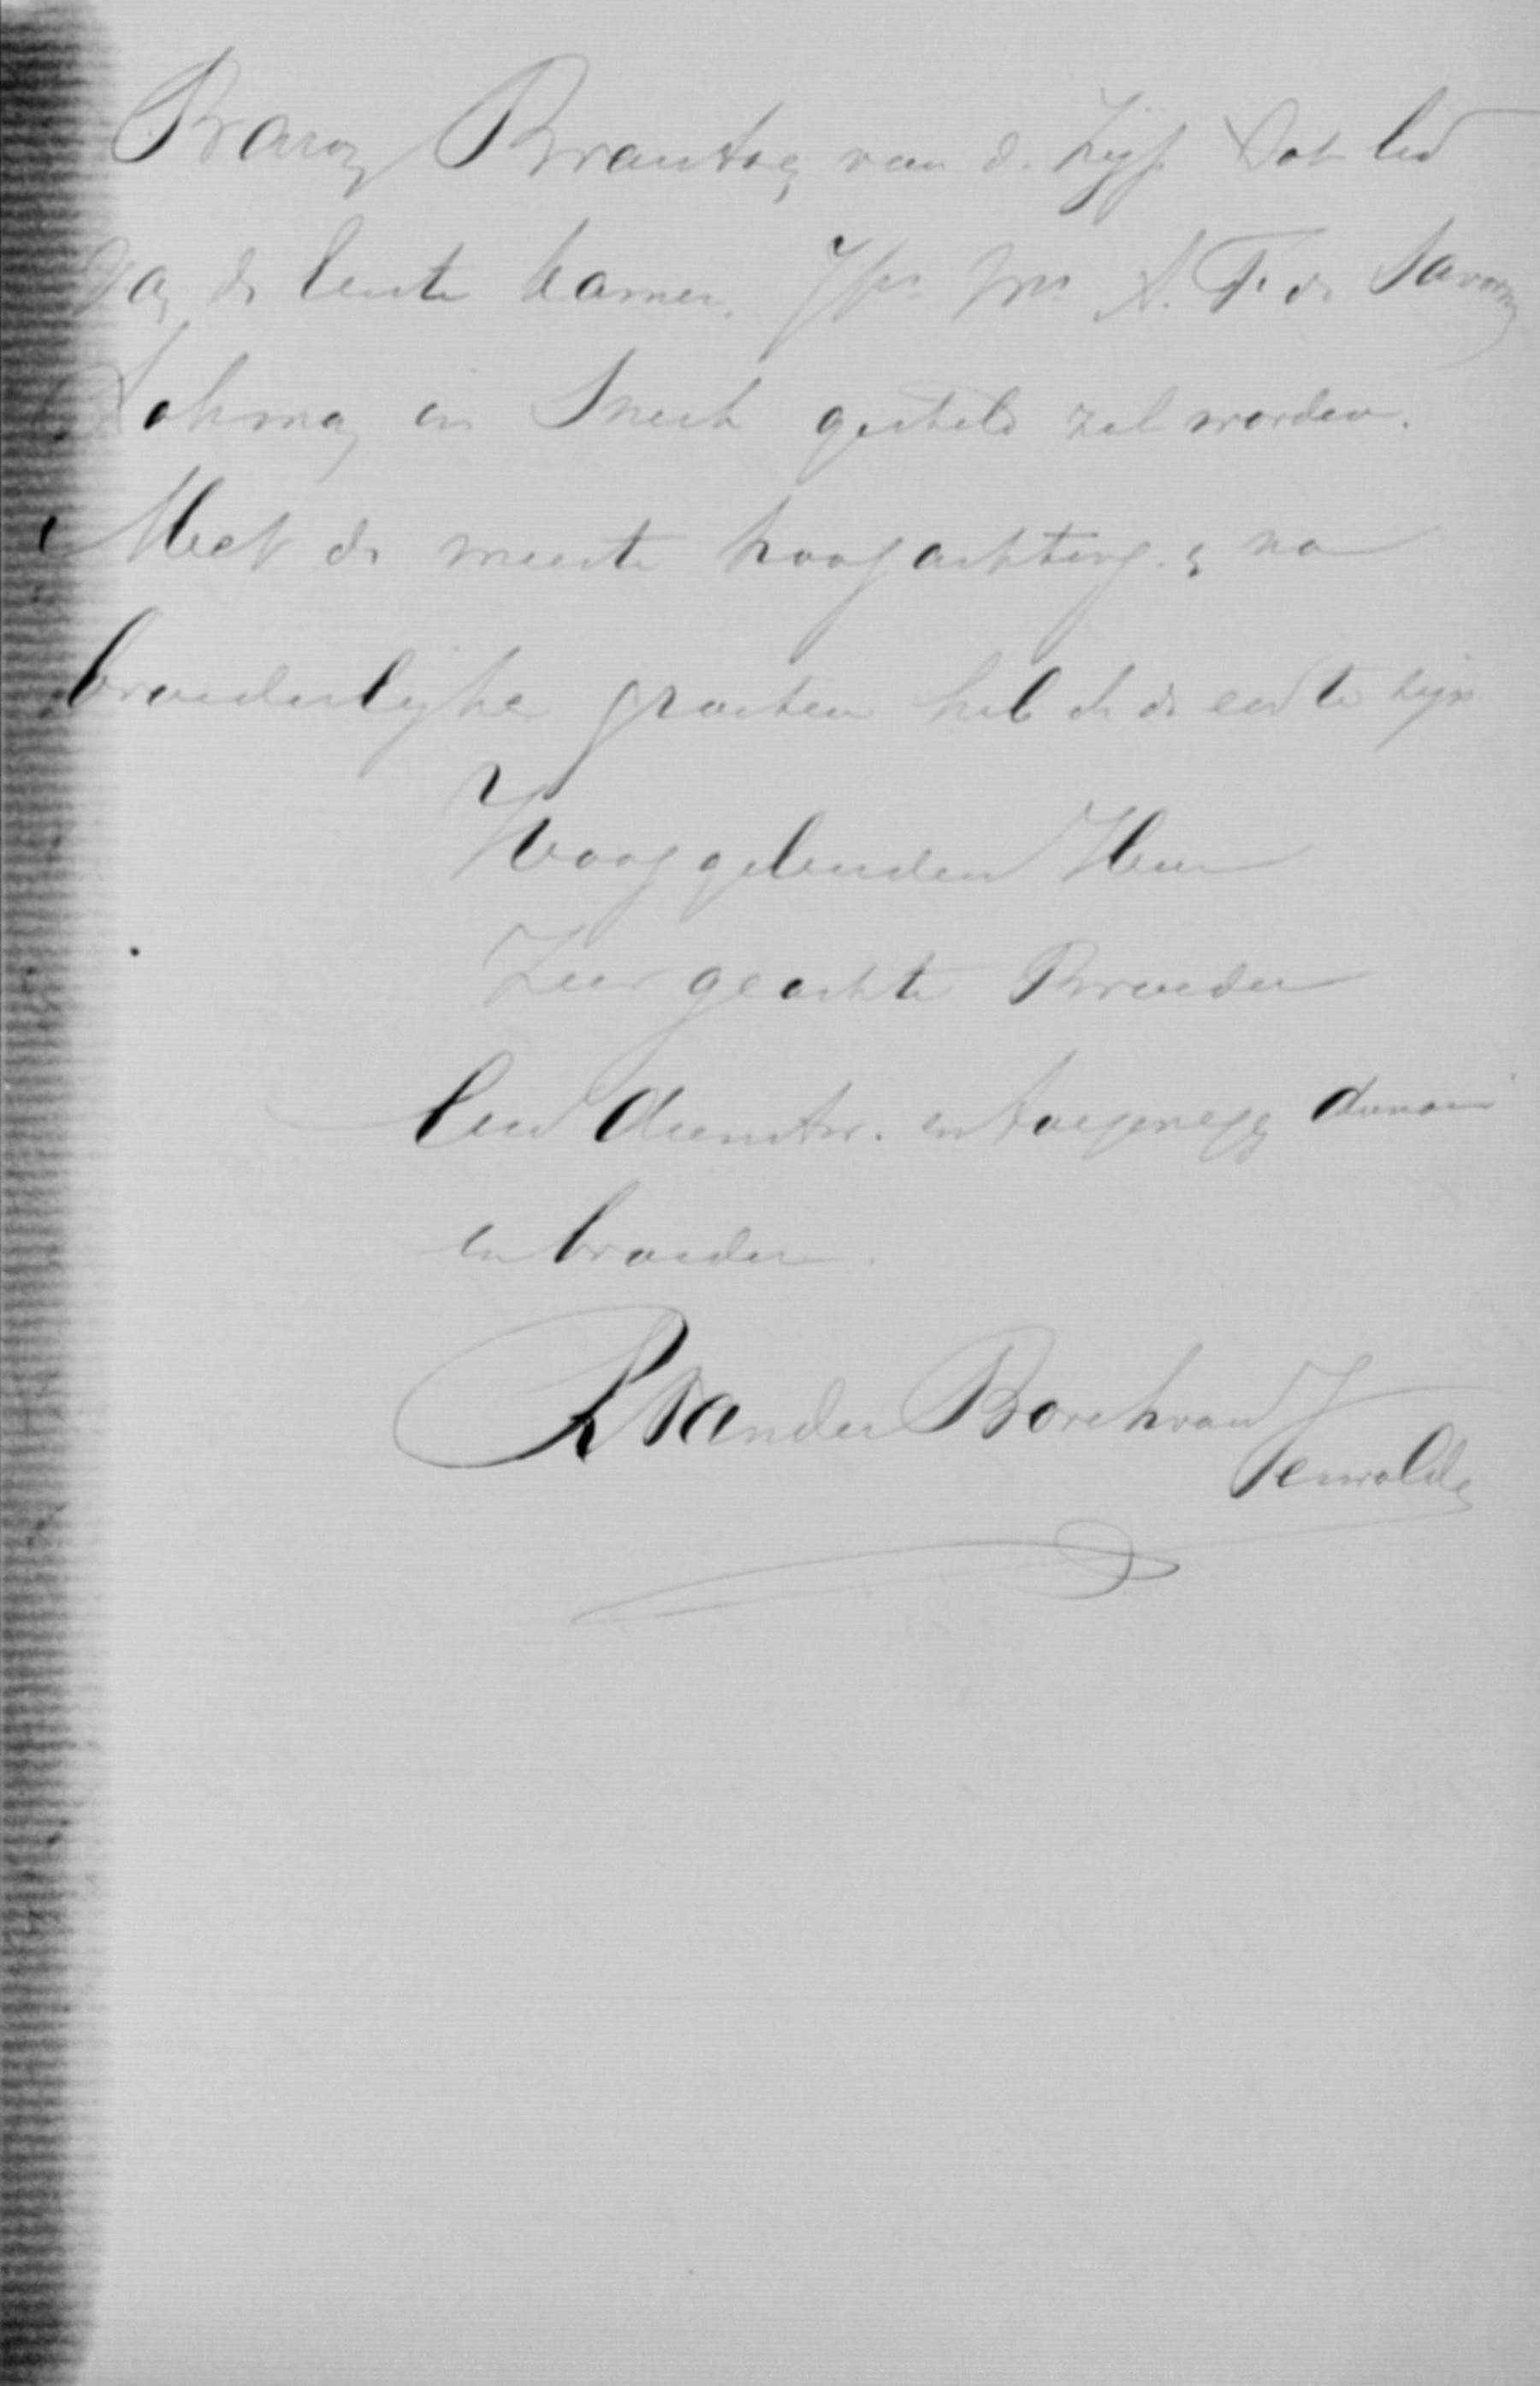 Baron Brantsen van d. Zijp tot lid
van de Eerste Kamer, Jhr Mr A. F. de Savornin
Lohman in Sneek gesteld zal worden.
Met de meeste hoogachting en na
broederlijke groeten heb ik de eer te zijn
Hooggeleerden Heer
Zeer geachte Broeder
Uw dienstw. en toegenegen dienaar
en broeder.
R van der Borch van
Verwolde